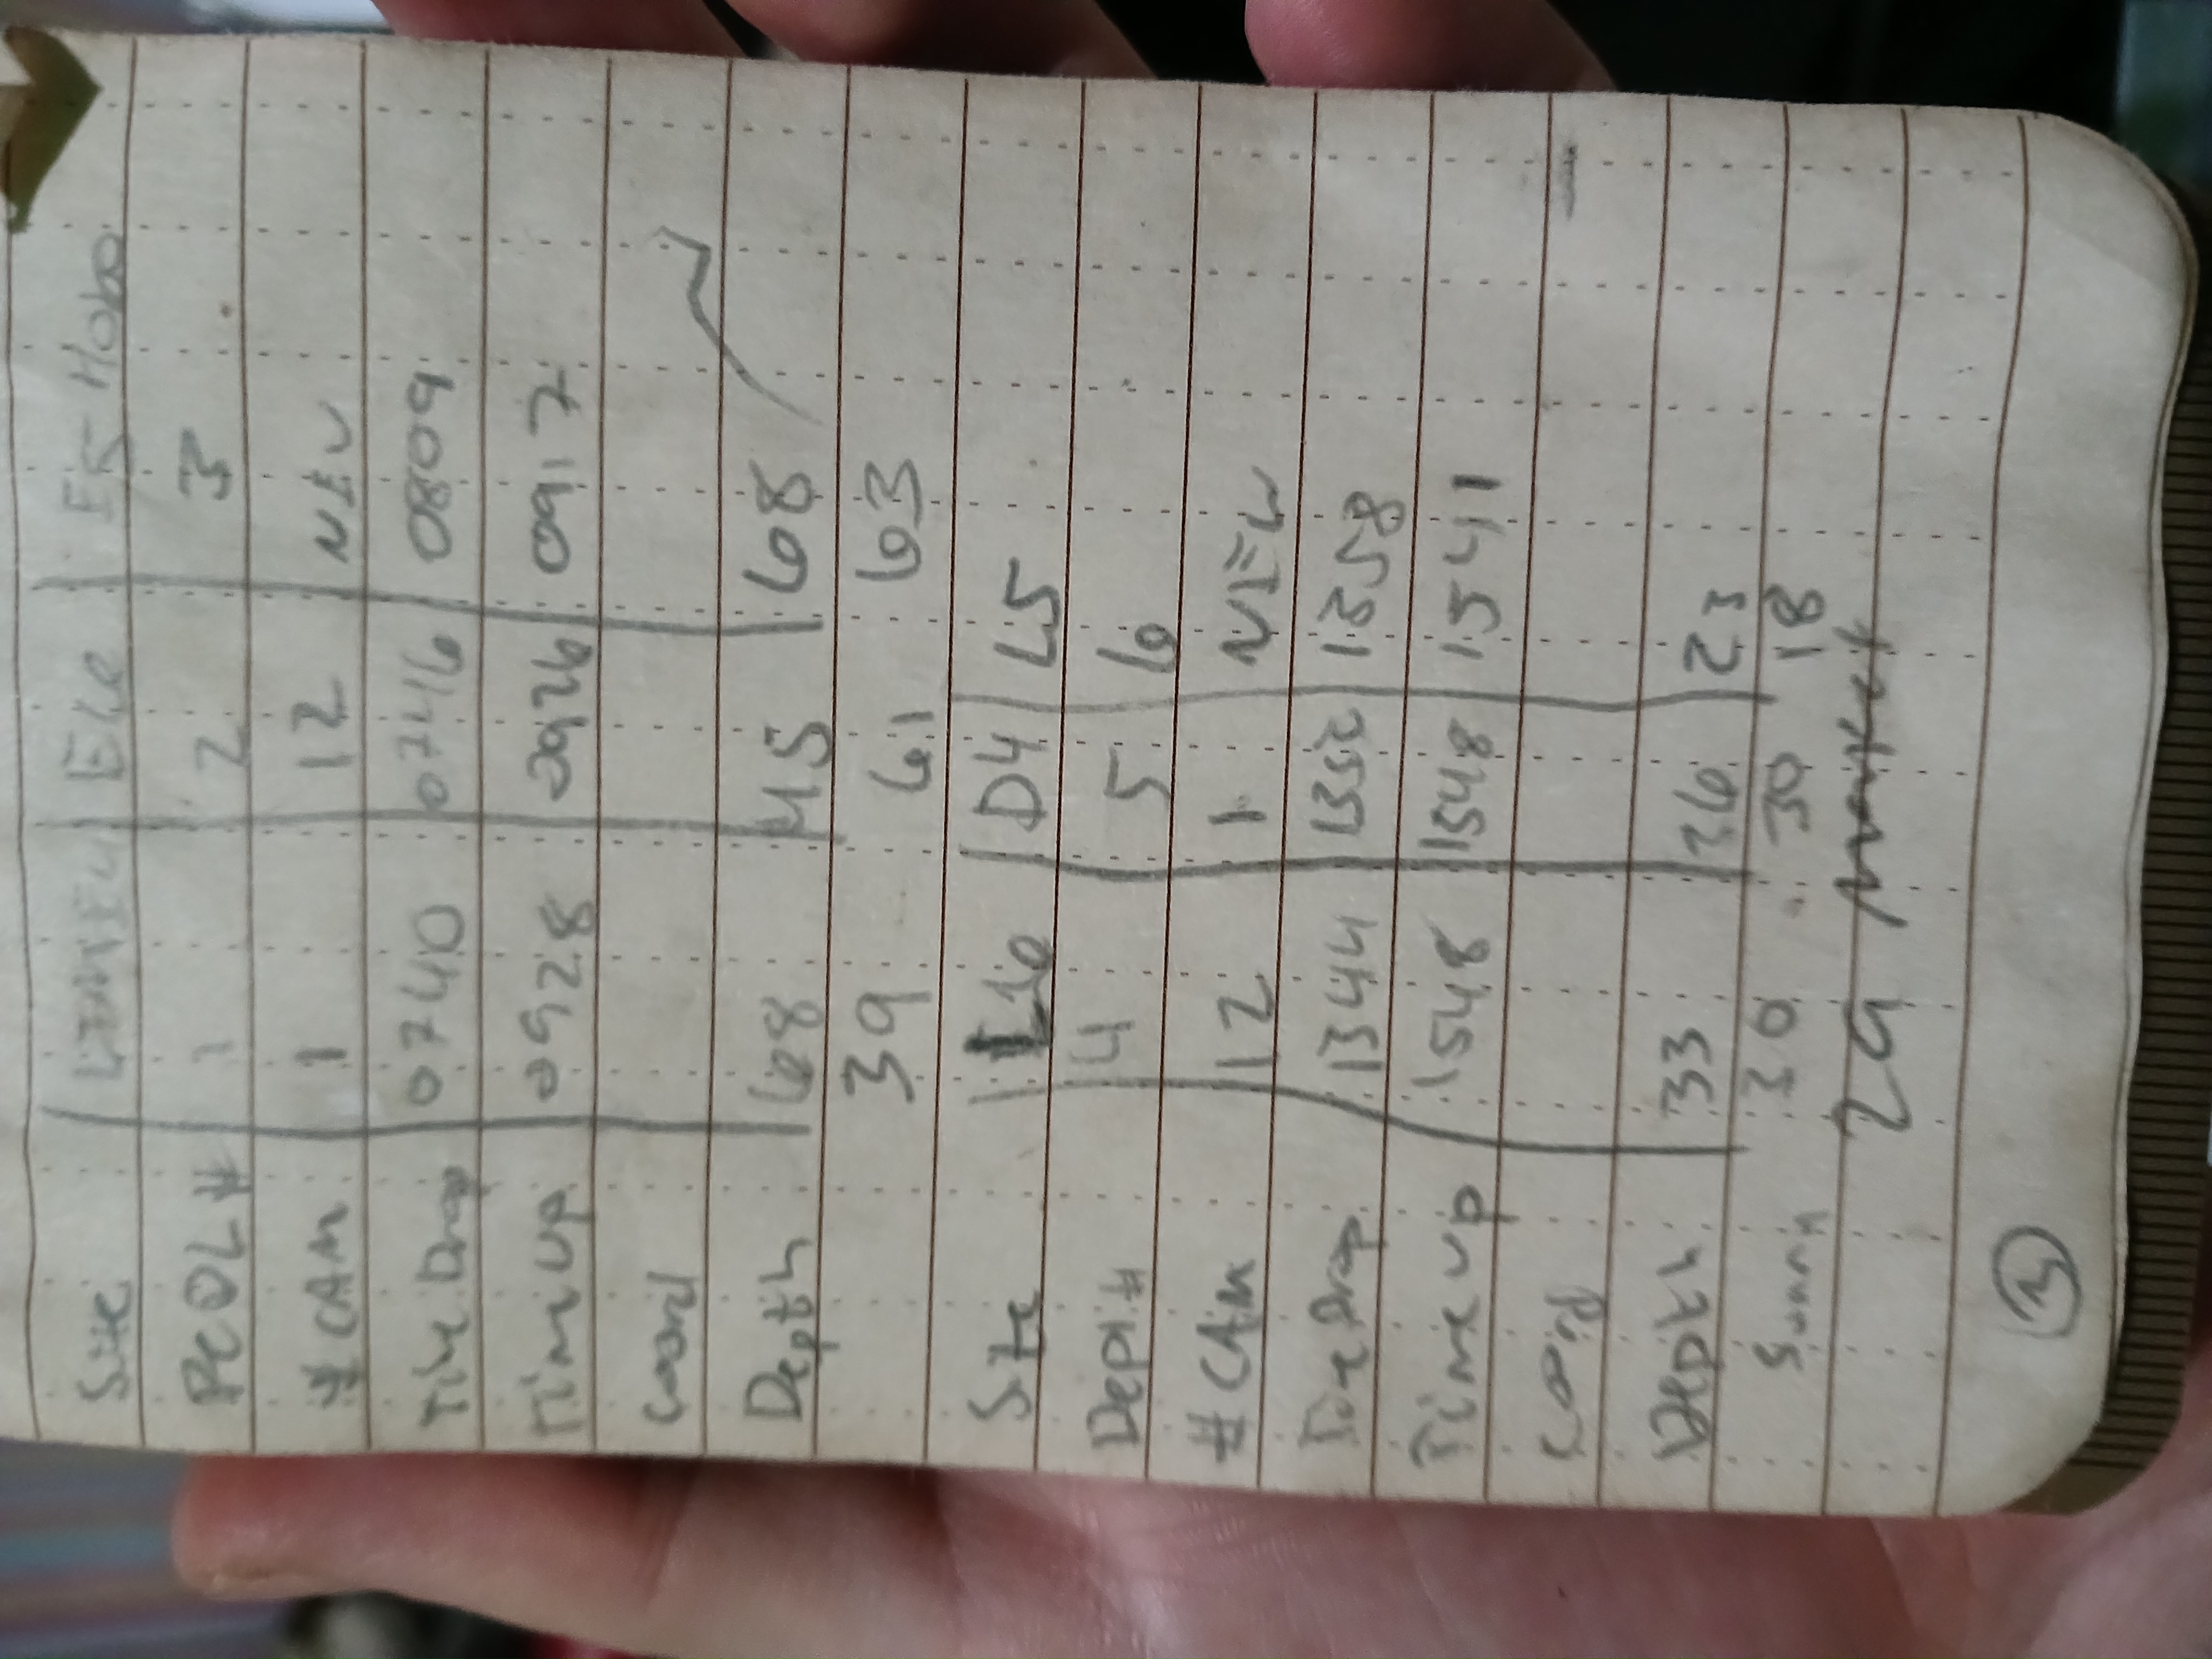 Site E6 E5 Hobo
# 1 2 3
# CAM 1 12 NEW
Time Drop 0740 0746 0809
Time Up 0928 0926 0917
Coord
Depth 68 45 68
39 61 63
Site L16 D4 L5
Depl.# 4 5 6
# CAM 12 1 NEW
Time Drop 1344 1352 1358
Time up 1548 1548 1541
Coord
Depth 33 26 23
30 30 18
29 Market
3